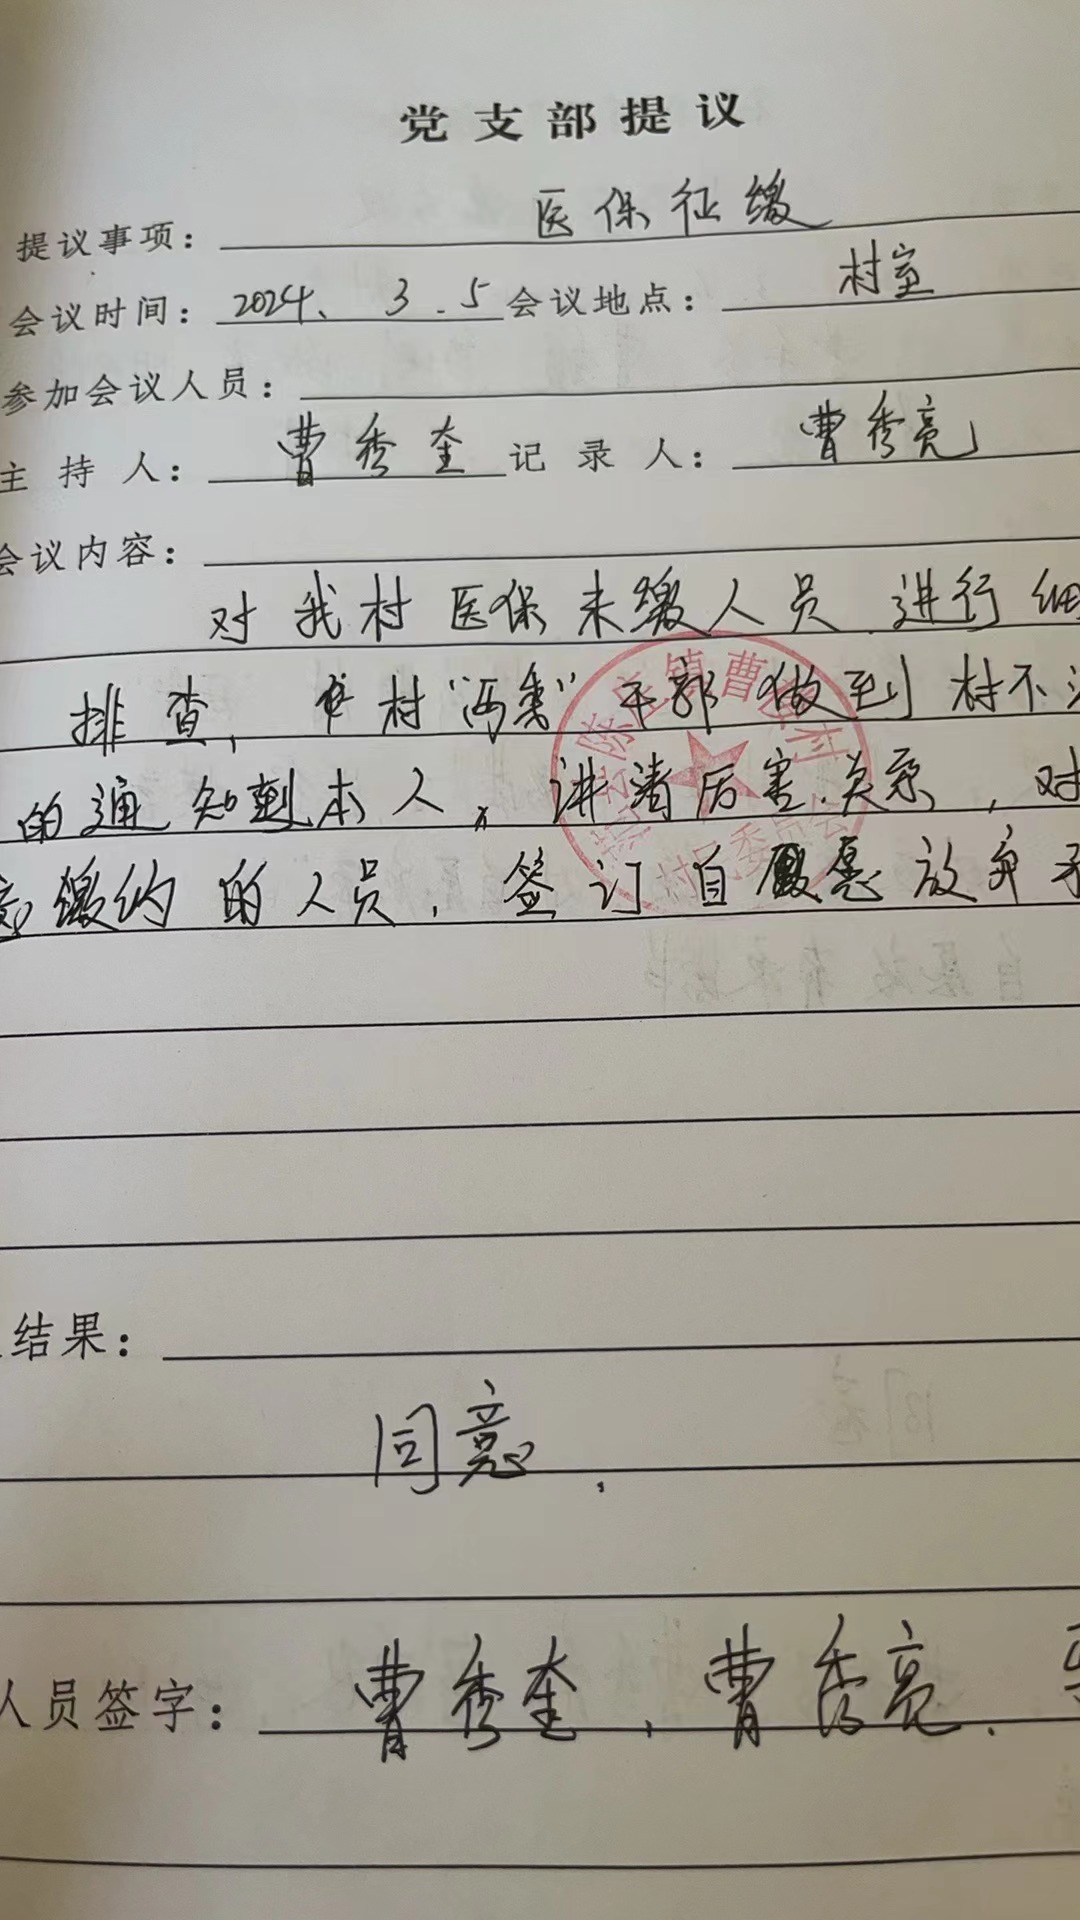 党支部提议
提议事项： 医保征缴
会议时间：2024、3.5 会议地点： 村室
参加会议人员：
主持人： 曹秀奎 记录人： 曹秀亮
会议内容：
对我村医保未缴人员进行
排查，村“两委”干部做到村不
的通知到本人，讲清厉害关系，对
缴约的人员，签订自愿放弃
结果：
同意
人员签字： 曹秀奎、曹秀亮、
镇曹
村
村民委员会